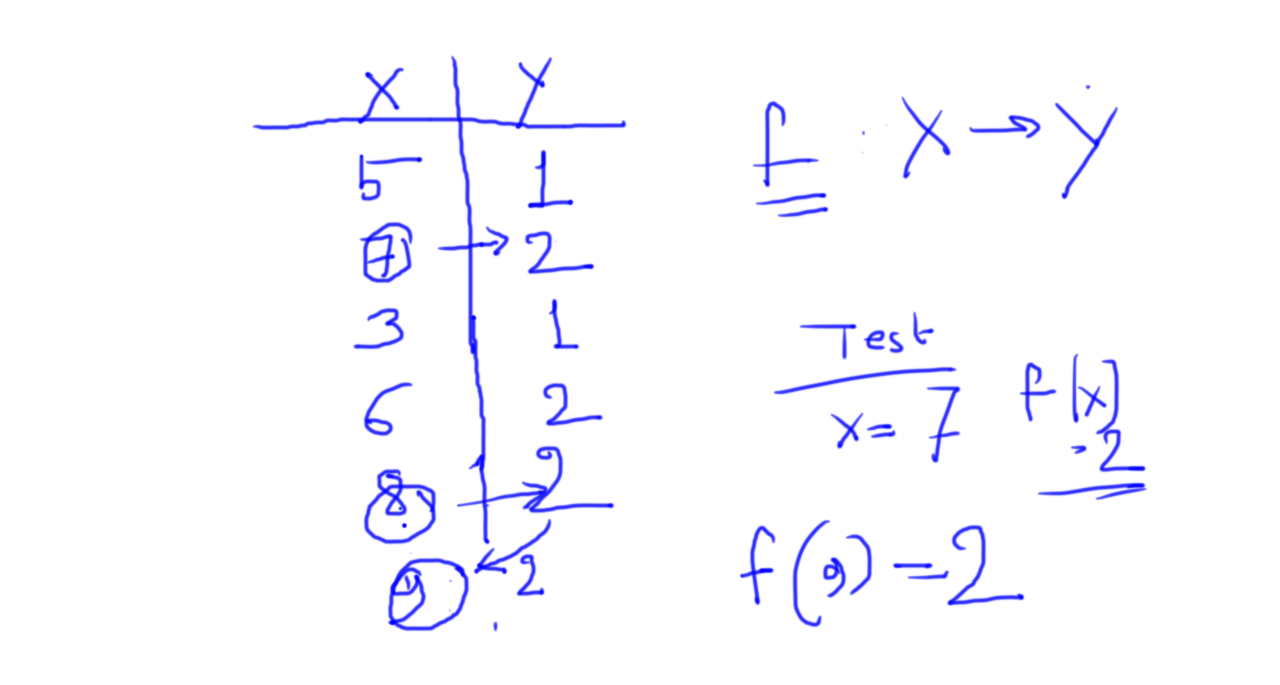 X Y
5 1
7 → 2
3 1
6 2
8 → 2
9 2
f : X → Y
Test
x = 7 f(x)
= 2
f(9) = 2